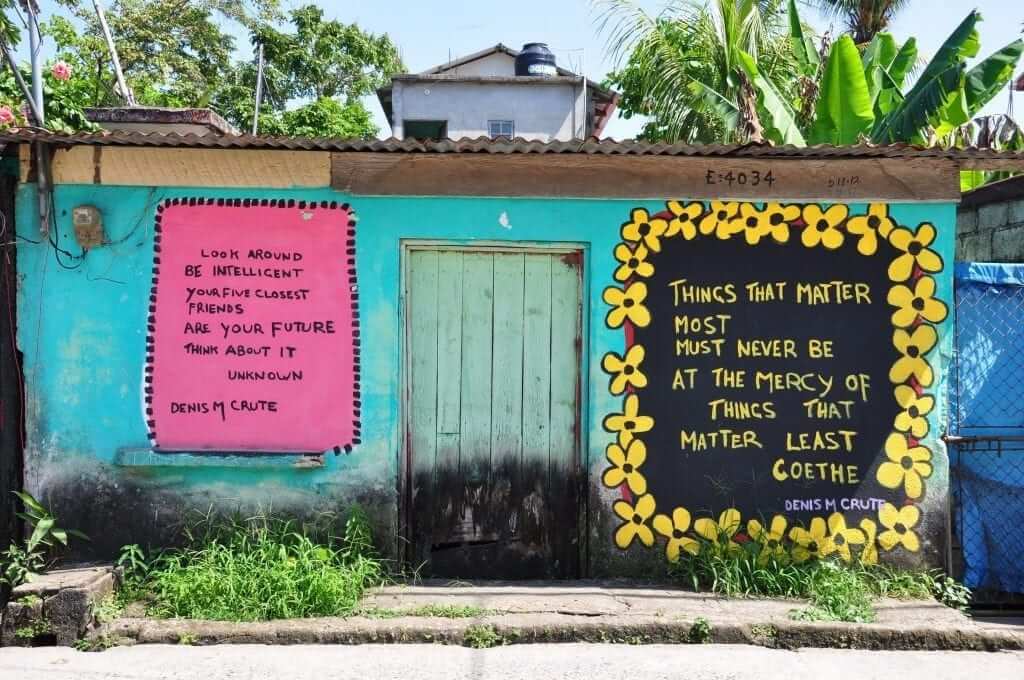 E:4034
LOOK AROUND
BE INTELLIGENT
YOUR FIVE CLOSEST
FRIENDS
ARE YOUR FUTURE
THINK ABOUT IT
UNKNOWN
DENIS M CRUTE
THINGS THAT MATTER
MOST
MUST NEVER BE
AT THE MERCY OF
THINGS THAT
MATTER LEAST
GOETHE
DENIS M CRUTE